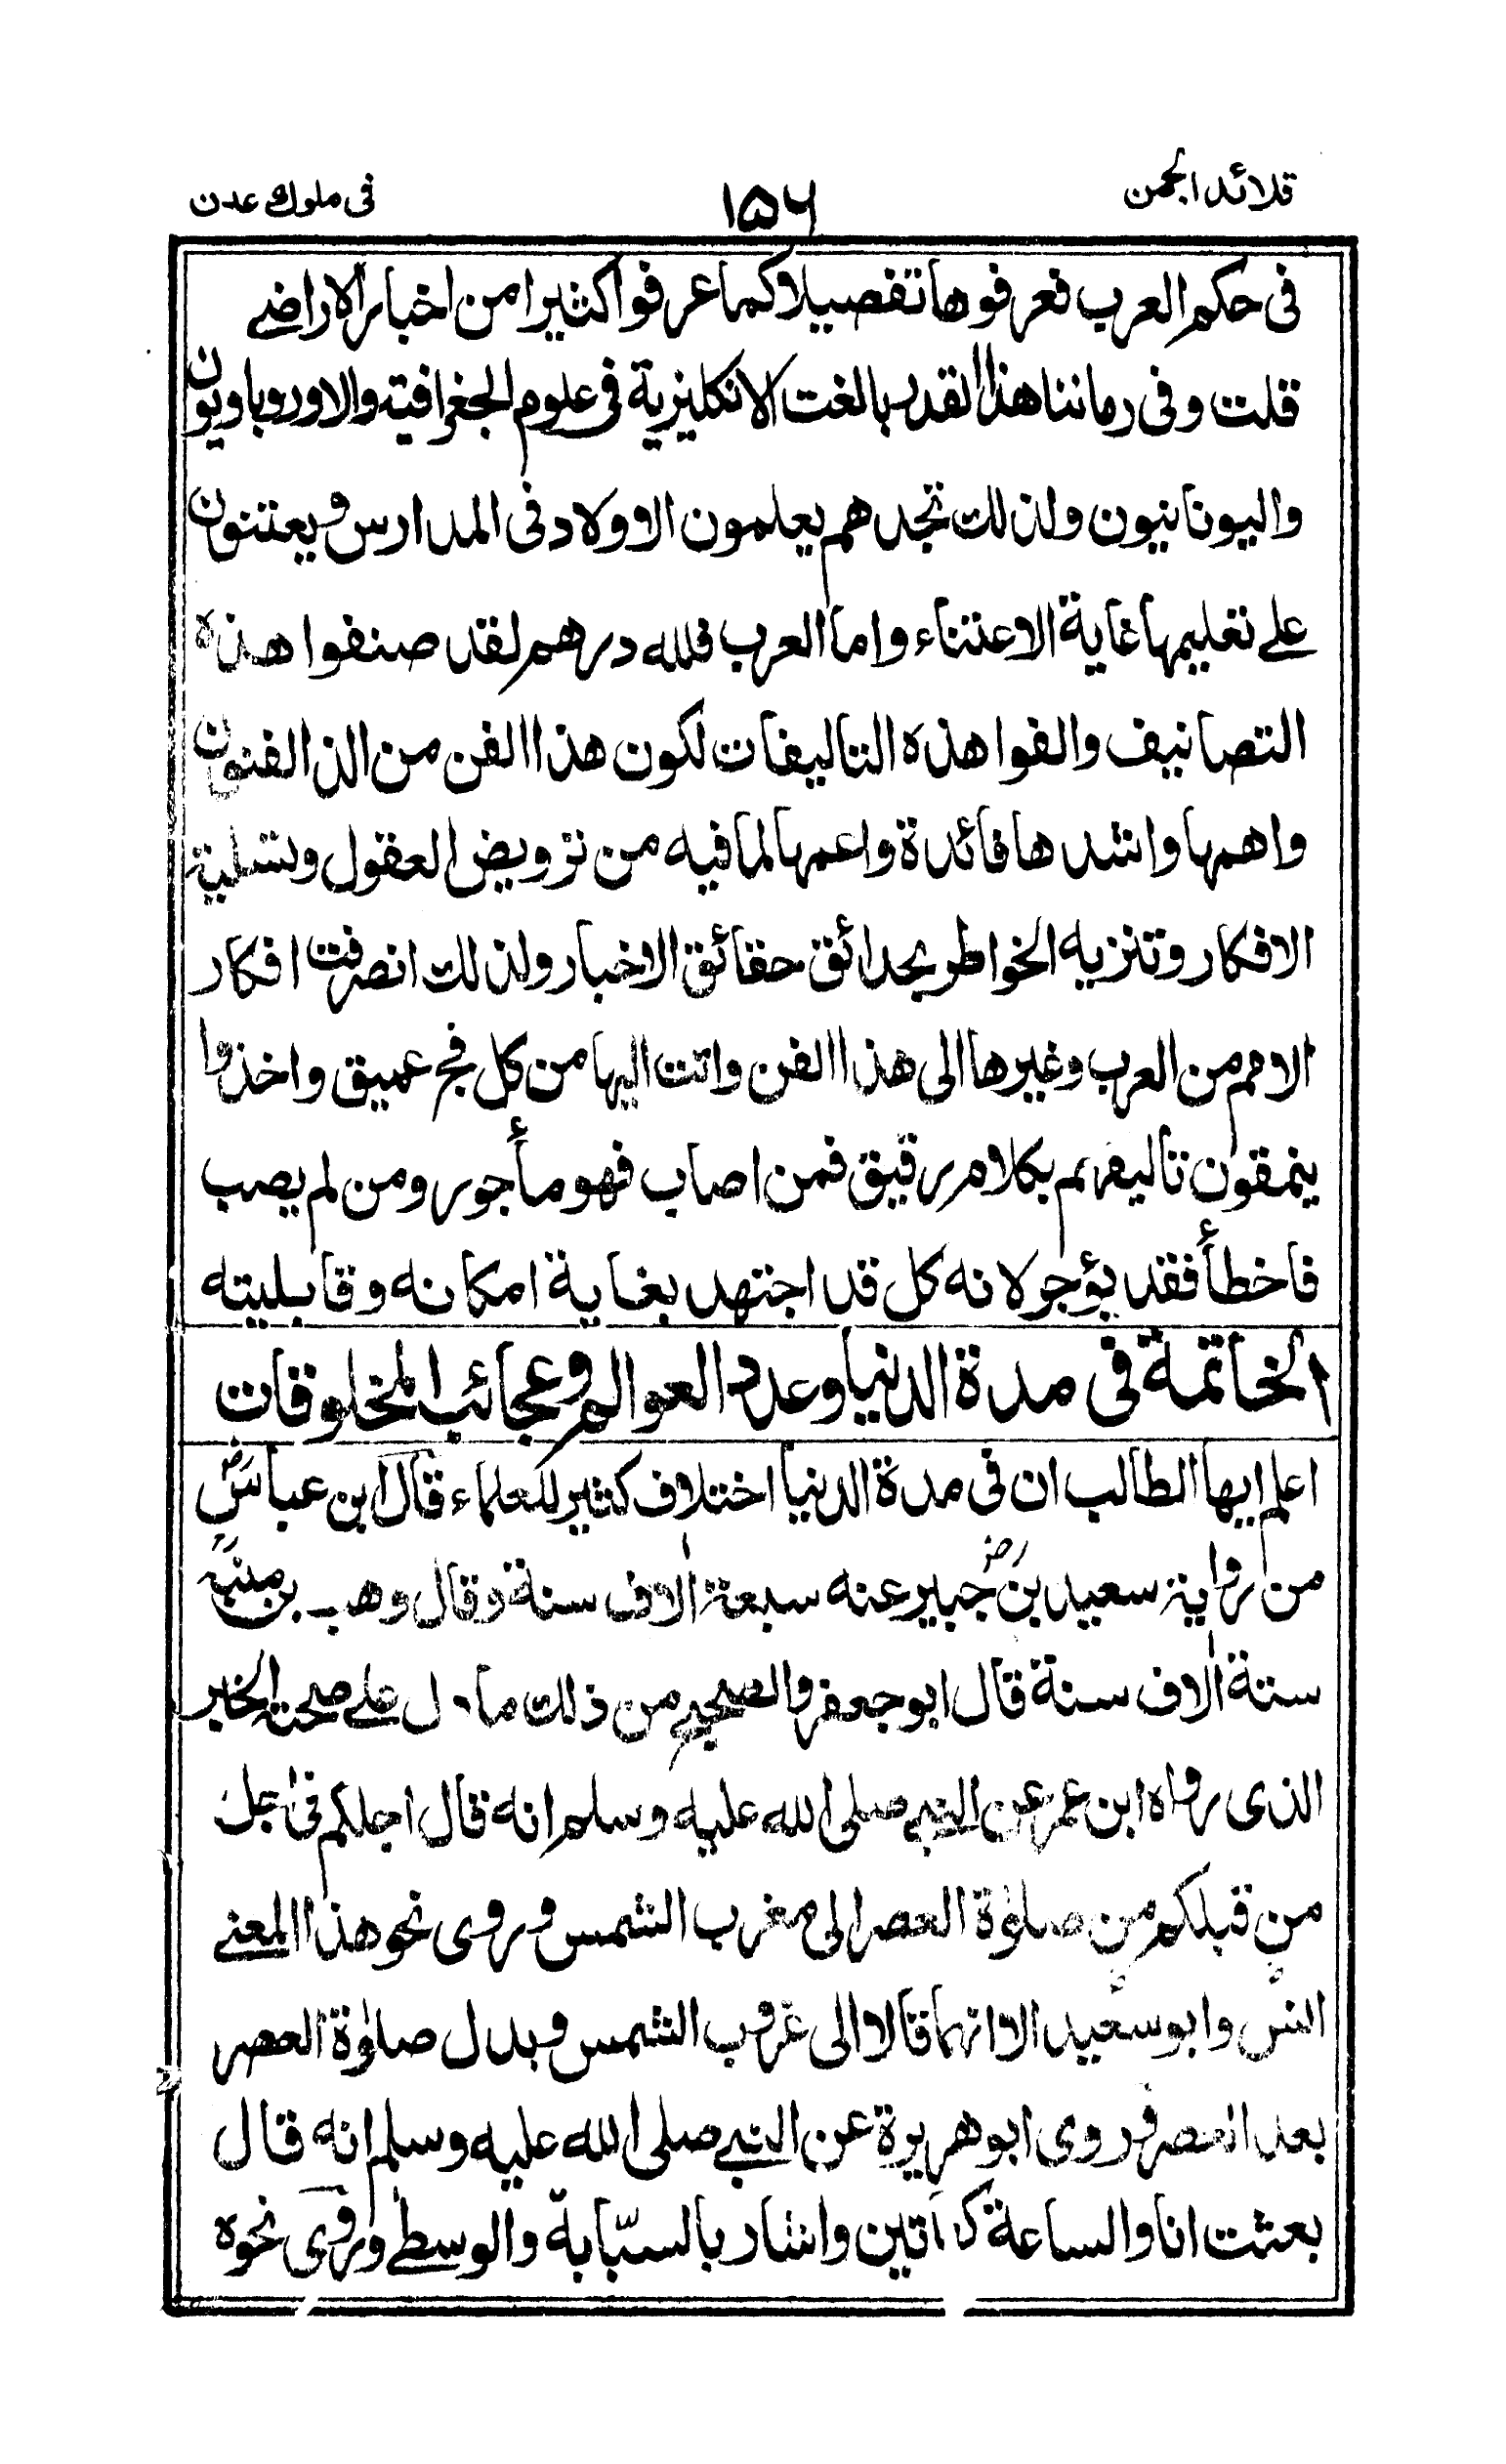 قلائد الجمن
١٥٦
فى ملوك عدن
فى حكم العرب فعرفوها تفصيلا كما عرفوا كثيرا من اخبار الاراضے
قلت وفى زماننا هذا لقد بالغت الانكليزية فى علوم الجغرافية والاوروباويون
واليونانيون ولذلك تجدهم يعلمون الاولاد فى المدارس ويعتنون
علے تعليمها غاية الاعتناء واما العرب فلله درهم لقد صنفوا هذه
التصانيف والفوا هذه التاليفات لكون هذا الفن من الذ الفنون
واهمها واشدها فائدة واعمها لما فيه من ترويض العقول وتسلية
الافكار وتنزيه الخواطر بحدائق حقائق الاخبار ولذلك انصرفت افكار
الامم من العرب وغيرها الى هذا الفن واتت اليها من كل فج عميق واخذوا
ينمقون تاليفهم بكلام رقيق فمن اصاب فهو مأجور ومن لم يصب
فاخطأ فقد يؤجر لانه كل قد اجتهد بغاية امكانه وقابليته
الخاتمة فى مدة الدنيا وعدد العوالم وعجائب المخلوقات
اعلم ايها الطالب ان فى مدة الدنيا اختلاف كثير للعلماء قال ابن عباسؓ
من رواية سعيد بن جبيرؓ عنه سبعة اٰلاف سنة وقال وهب بن منبه
ستة اٰلاف سنة قال ابو جعفر والصحيح من ذلك ما دل علے صحته الخبر
الذى رواه ابن عمر عن النبے صلى الله عليه وسلم انه قال اجلكم فى اجل
من قبلكم من صلوٰة العصر الى مغرب الشمس وروى نحو هذا المعنے
انس وابو سعيد الا انهما قالا الى غروب الشمس وبدل صلوٰة العصر
بعد العصر وروى ابو هريرة عن النبے صلى الله عليه وسلم انه قال
بعثت انا والساعة كهاتين واشار بالسبّابة والوسطے وروى نحوه